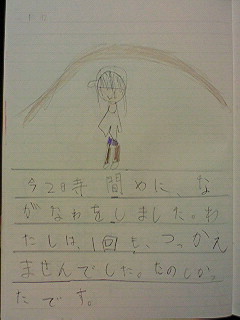 今2日寺間めに、な
がなわをしました。わ
たしは、1回も、つっかえ
ませんでした。たのしかっ
たです。